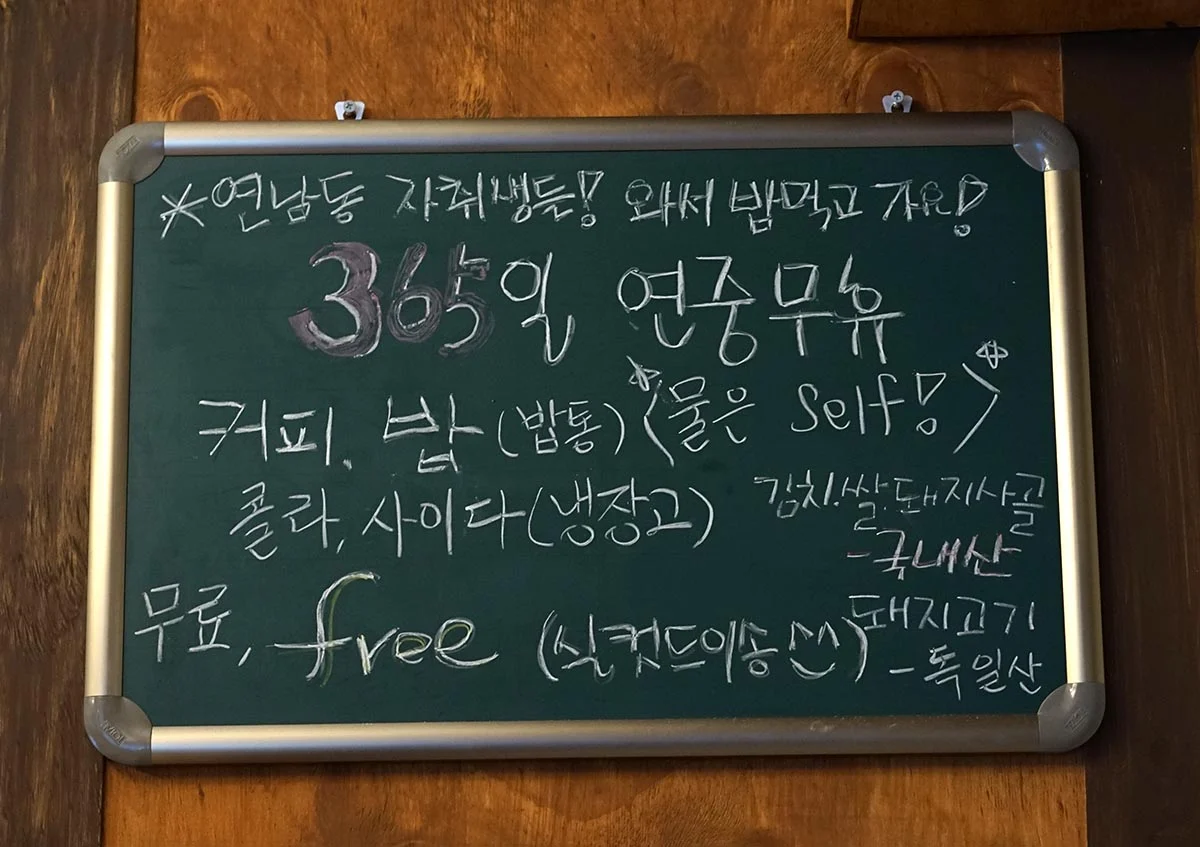 *연남동 자취생들! 와서 밥먹고 가요!
365일 연중무휴
커피, 밥 (밥통) <물은 self!>
콜라, 사이다 (냉장고)
무료, free (실컷드이송 ^^)
김치.쌀.돼지사골
-국내산
돼지고기
-독일산